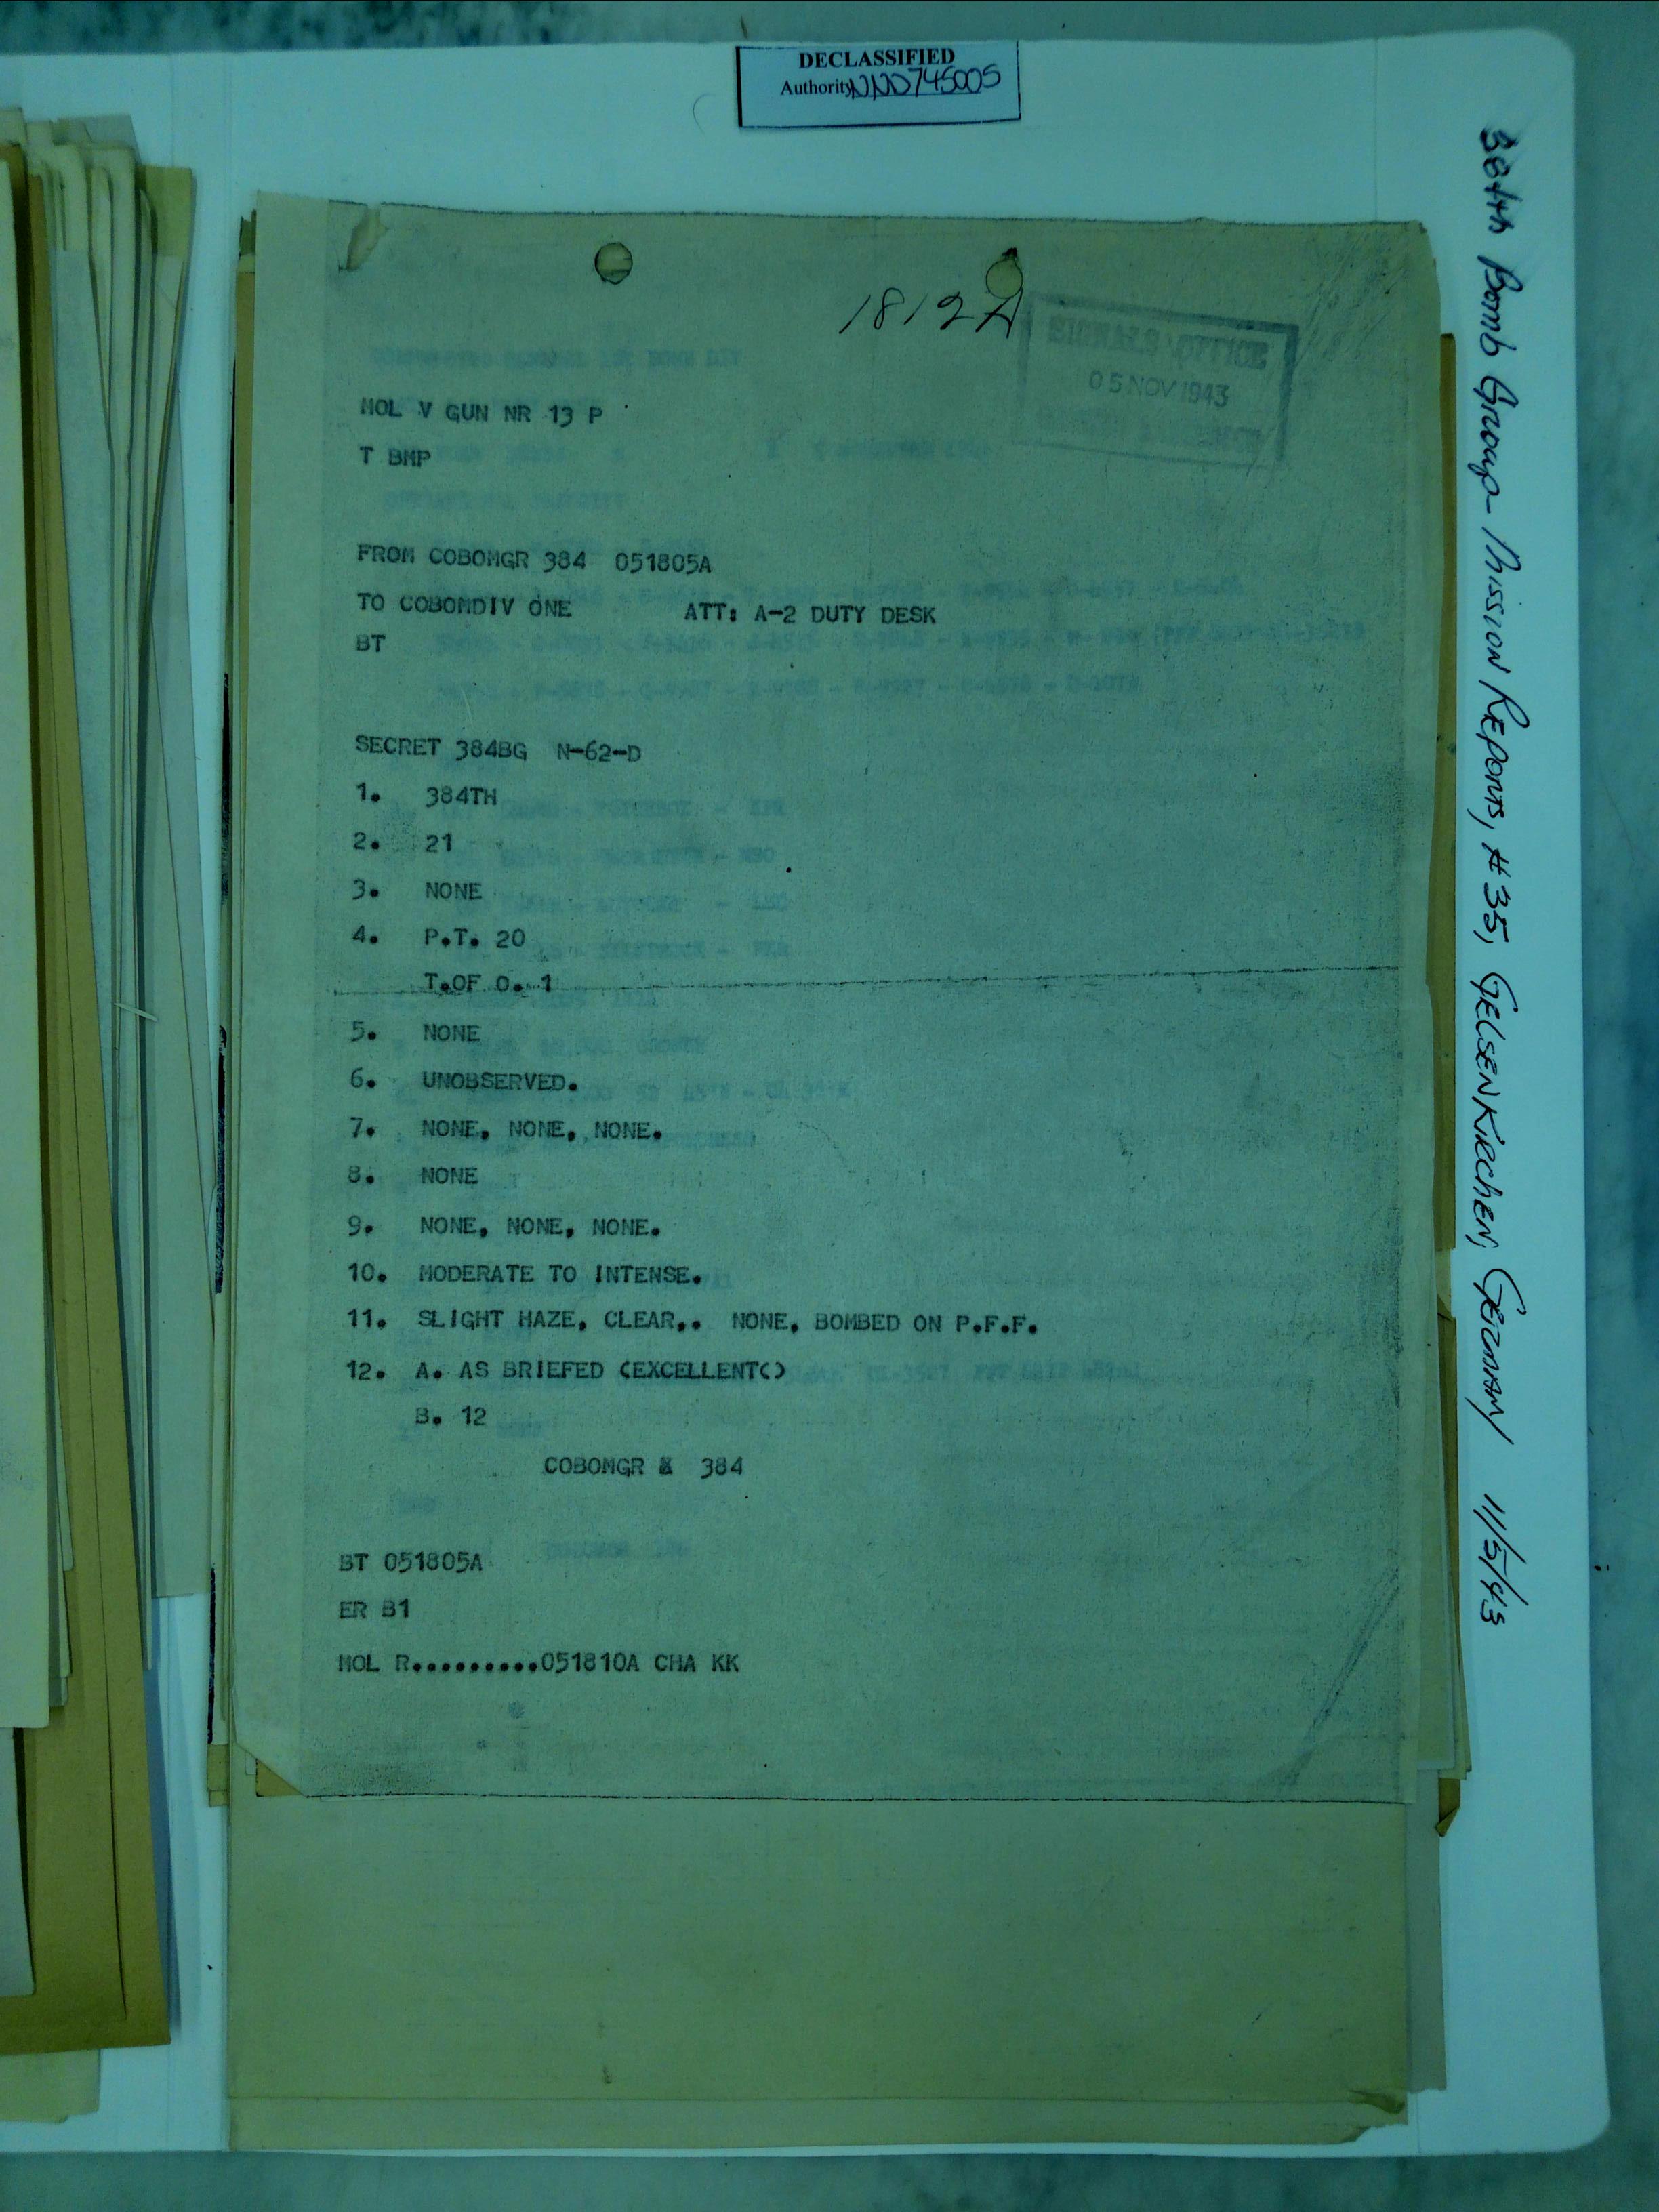 DECLASSIFIED
Authority NND745005
384th Bomb Group - Mission Reports, #35, Gelsenkirchen, Germany 11/5/43
1812A
SIGNALS OFFICE
05 NOV 1943
MOL V GUN NR 13 P
T BMP
FROM COBOMGR 384 051805A
TO COBOMDIV ONE ATT: A-2 DUTY DESK
BT
SECRET 384BG N-62-D
1. 384TH
2. 21
3. NONE
4. P.T. 20
T.OF O. 1
5. NONE
6. UNOBSERVED.
7. NONE, NONE, NONE.
8. NONE
9. NONE, NONE, NONE.
10. MODERATE TO INTENSE.
11. SLIGHT HAZE, CLEAR,. NONE, BOMBED ON P.F.F.
12. A. AS BRIEFED (EXCELLENT()
B. 12
COBOMGR 384
BT 051805A
ER B1
MOL R.........051810A CHA KK